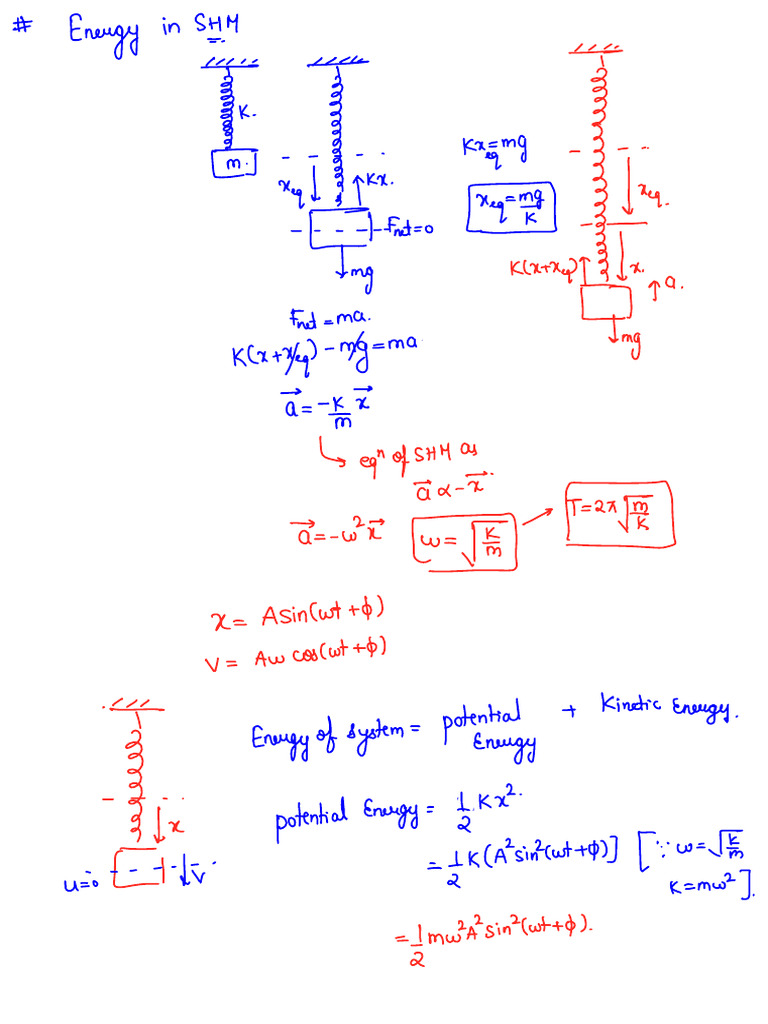 # Energy in SHM
K.
m.
x_eq
Kx.
F_net=0
mg
Kx_eq=mg
x_eq=mg/K
x_eq.
K(x+x_eq)
x.
a.
mg
F_net=ma.
K(x+x_eq)-mg=ma
a⃗=-K/m x⃗
eqⁿ of SHM as
a⃗ ∝ -x⃗.
a⃗=-ω²x⃗
ω=√(K/m)
T=2π√(m/K)
x= Asin(ωt+ϕ)
V= Aω cos(ωt+ϕ)
Energy of system= potential Energy + Kinetic Energy.
x
u=0
V
potential Energy= 1/2 Kx².
=1/2 K(A²sin²(ωt+ϕ)] [∵ω=√(K/m)
K=mω²].
=1/2 mω²A²sin²(ωt+ϕ).